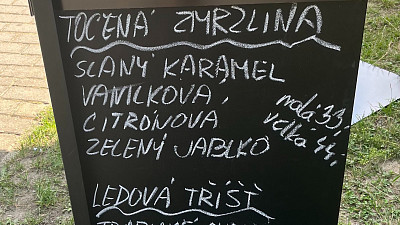 TOČENÁ ZMRZLINA
SLANÝ KARAMEL
VANILKOVÁ
CITRÓNOVÁ
ZELENÝ JABLKO
malá 33,
velká 44,
LEDOVÁ TŘÍŠŤ